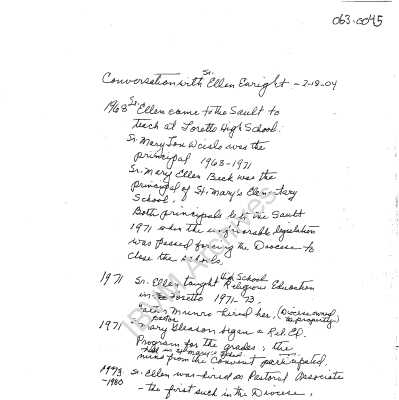 063.0045
Conversation with Sr. Ellen Enright – 2-18-04
1968 Sr. Ellen came to the Sault to
teach at Loretto High School.
Sr. Mary Jon Wcisle was the
principal 1963-1971
Sr. Mary Ellen Beck was the
principal of St. Mary's Elementary
School.
Both principals left the Sault
1971 when the unfavorable legislation
was passed forcing the Diocese to
close the schools.
1971 Sr. Ellen taught High School Religious Education
in Loretto 1971-73.
Munro hired her. (Diocese owned
pastor the property)
1971 Mary Gleason began a Rel. Ed.
Program for the grades, the
held in St. Mary's School
nuns from the Convent participated.
1973 Sr. Ellen was hired as Pastoral Associate
-1980 – the first such in the Diocese,
IBVM Archives